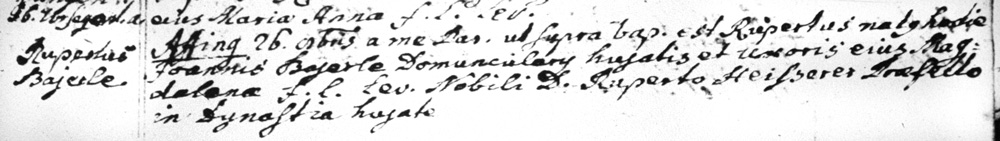 eius Maria Anna f. l. lev.
Rupertus
Bajerle.
Affing 26. 9bris a me Par. ut supra bap. est Rupertus natq hodie
Joannis Bajerle Domunculary hujatis et Uxoris eius Mag=
dalenæ f. l. Lev. Nobili D. Ruperto Heisserer Præfecto
in Dynastia hujate